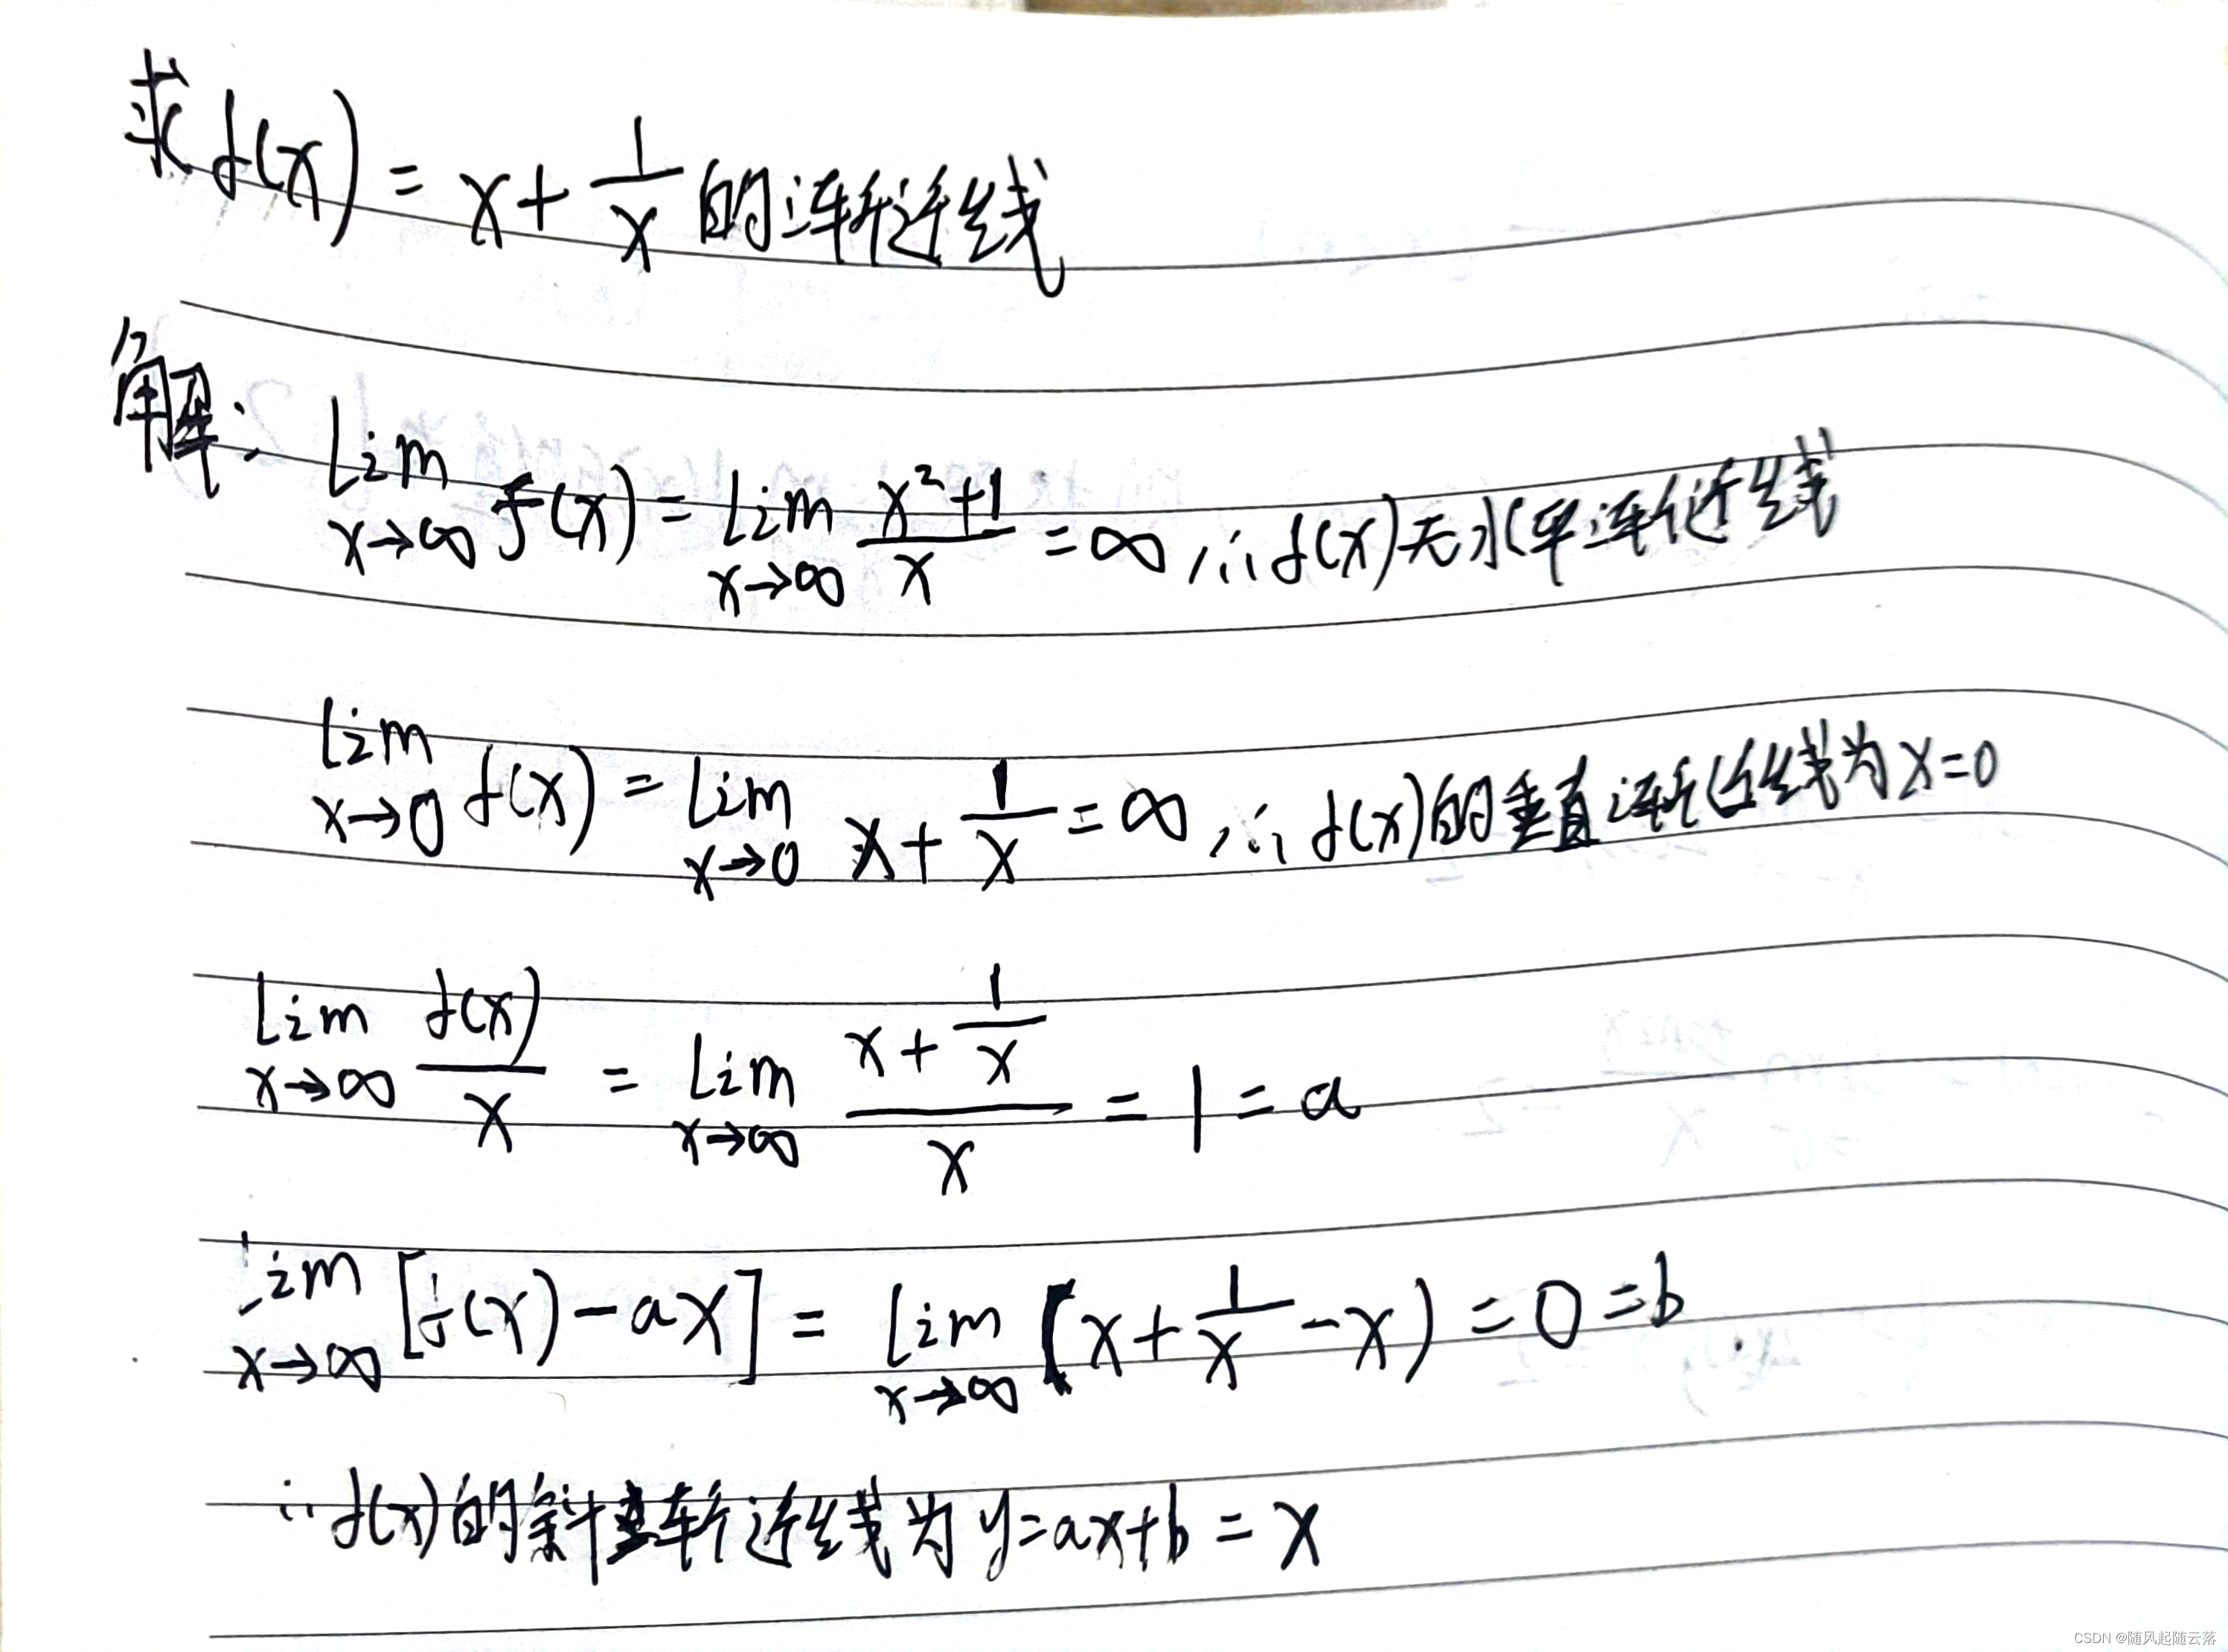 求f(x) = x + 1/x 的渐近线
解: lim x→∞ f(x) = lim x→∞ (x²+1)/x = ∞, ∴ f(x)无水平渐近线
lim x→0 f(x) = lim x→0 x + 1/x = ∞, ∴ f(x)的垂直渐近线为x=0
lim x→∞ f(x)/x = lim x→∞ (x + 1/x)/x = 1 = a
lim x→∞ [f(x) - ax] = lim x→∞ (x + 1/x - x) = 0 = b
∴ f(x)的斜渐近线为 y=ax+b = x
CSDN @随风起随云落